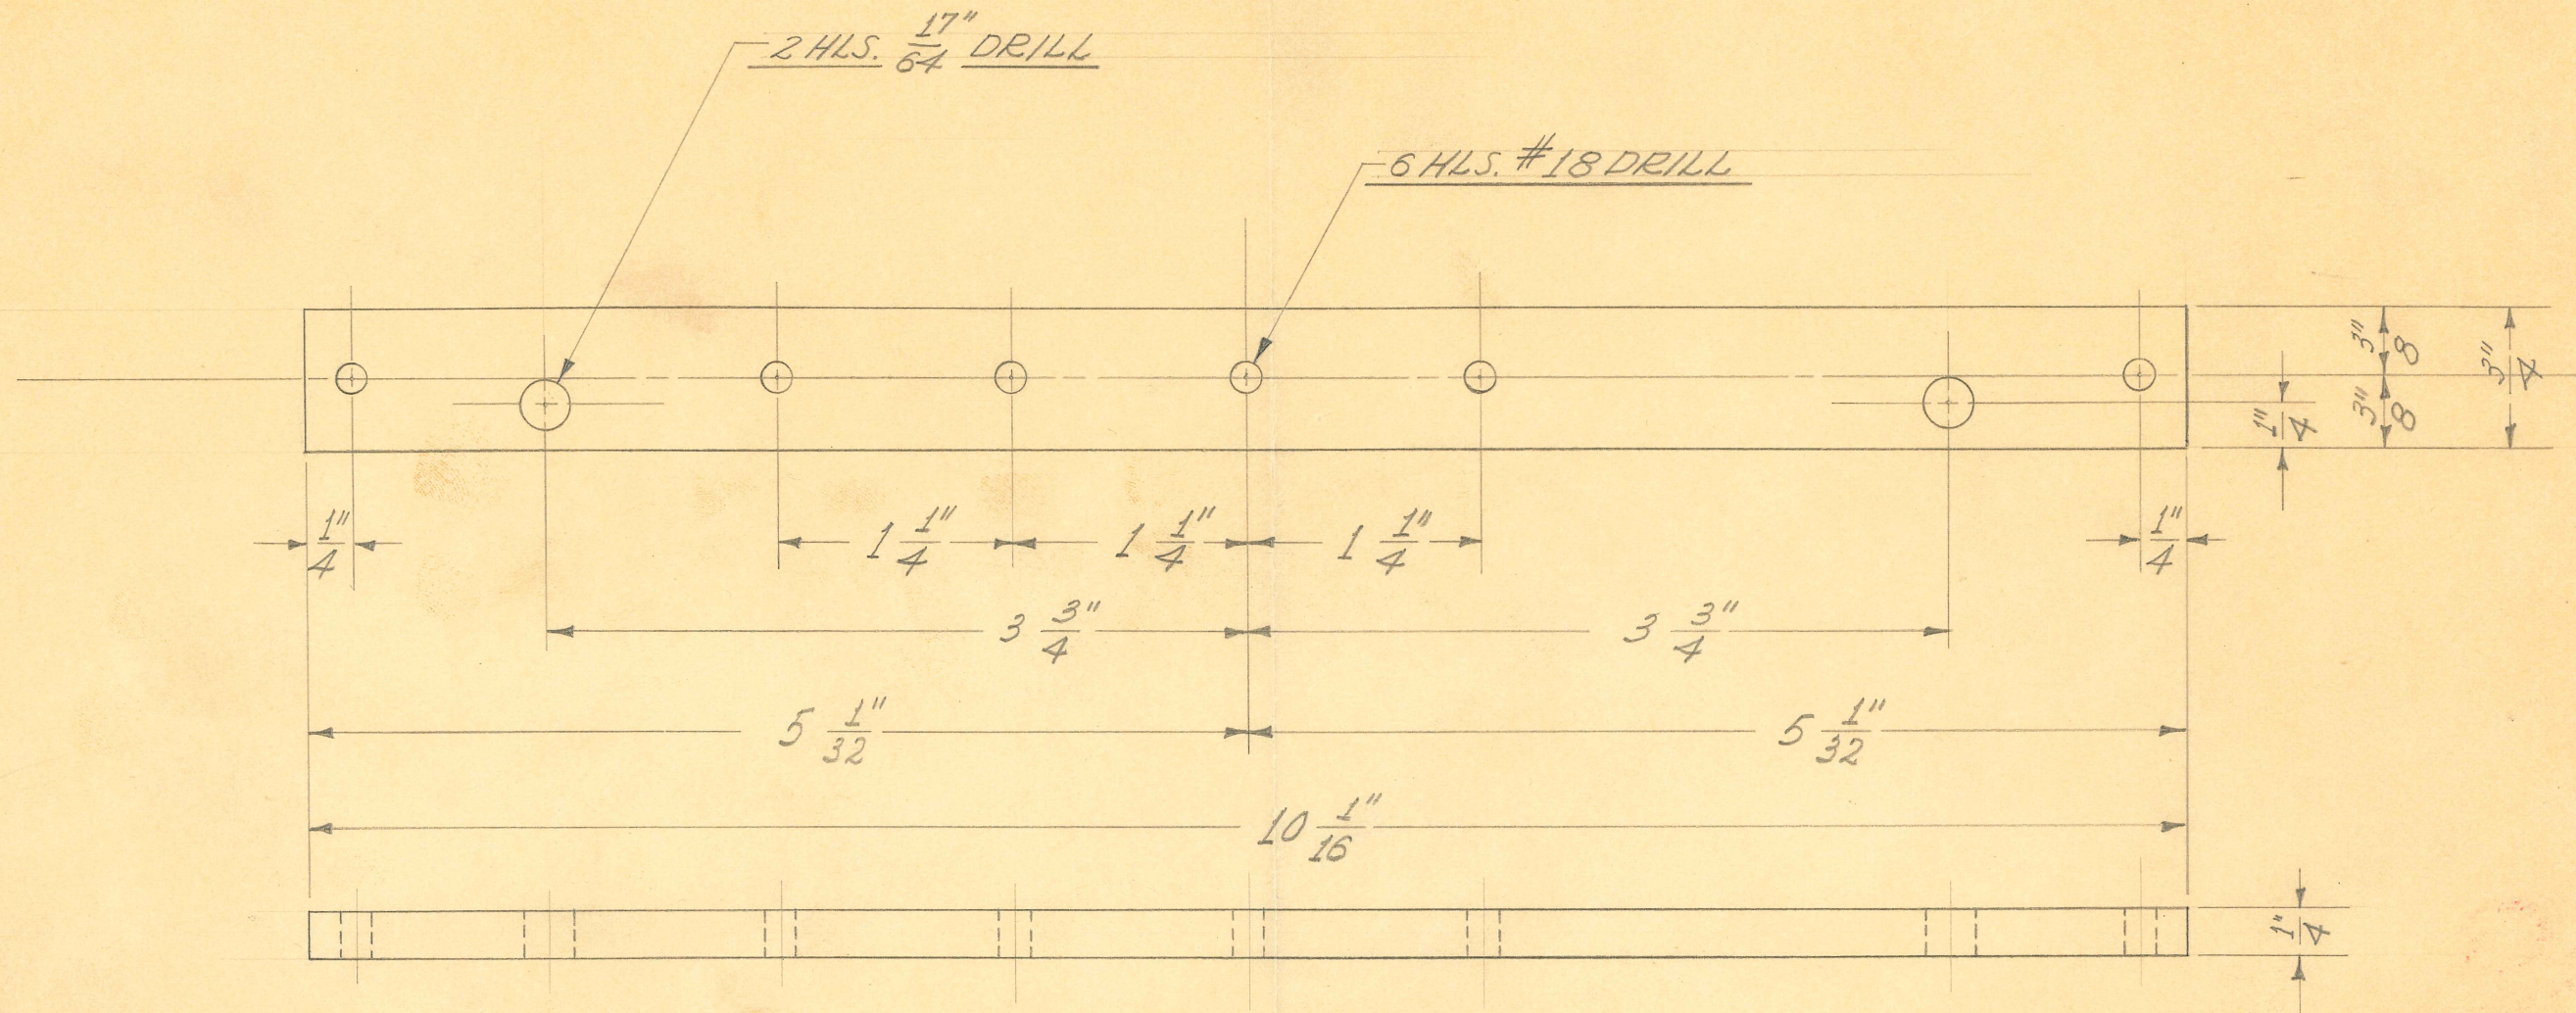 2 HLS. 17/64" DRILL
6 HLS. #18 DRILL
3/8"
3/4"
3/8"
1/4"
1/4"
1 1/4"
1 1/4"
1 1/4"
1/4"
3 3/4"
3 3/4"
5 1/32"
5 1/32"
10 1/16"
1/4"